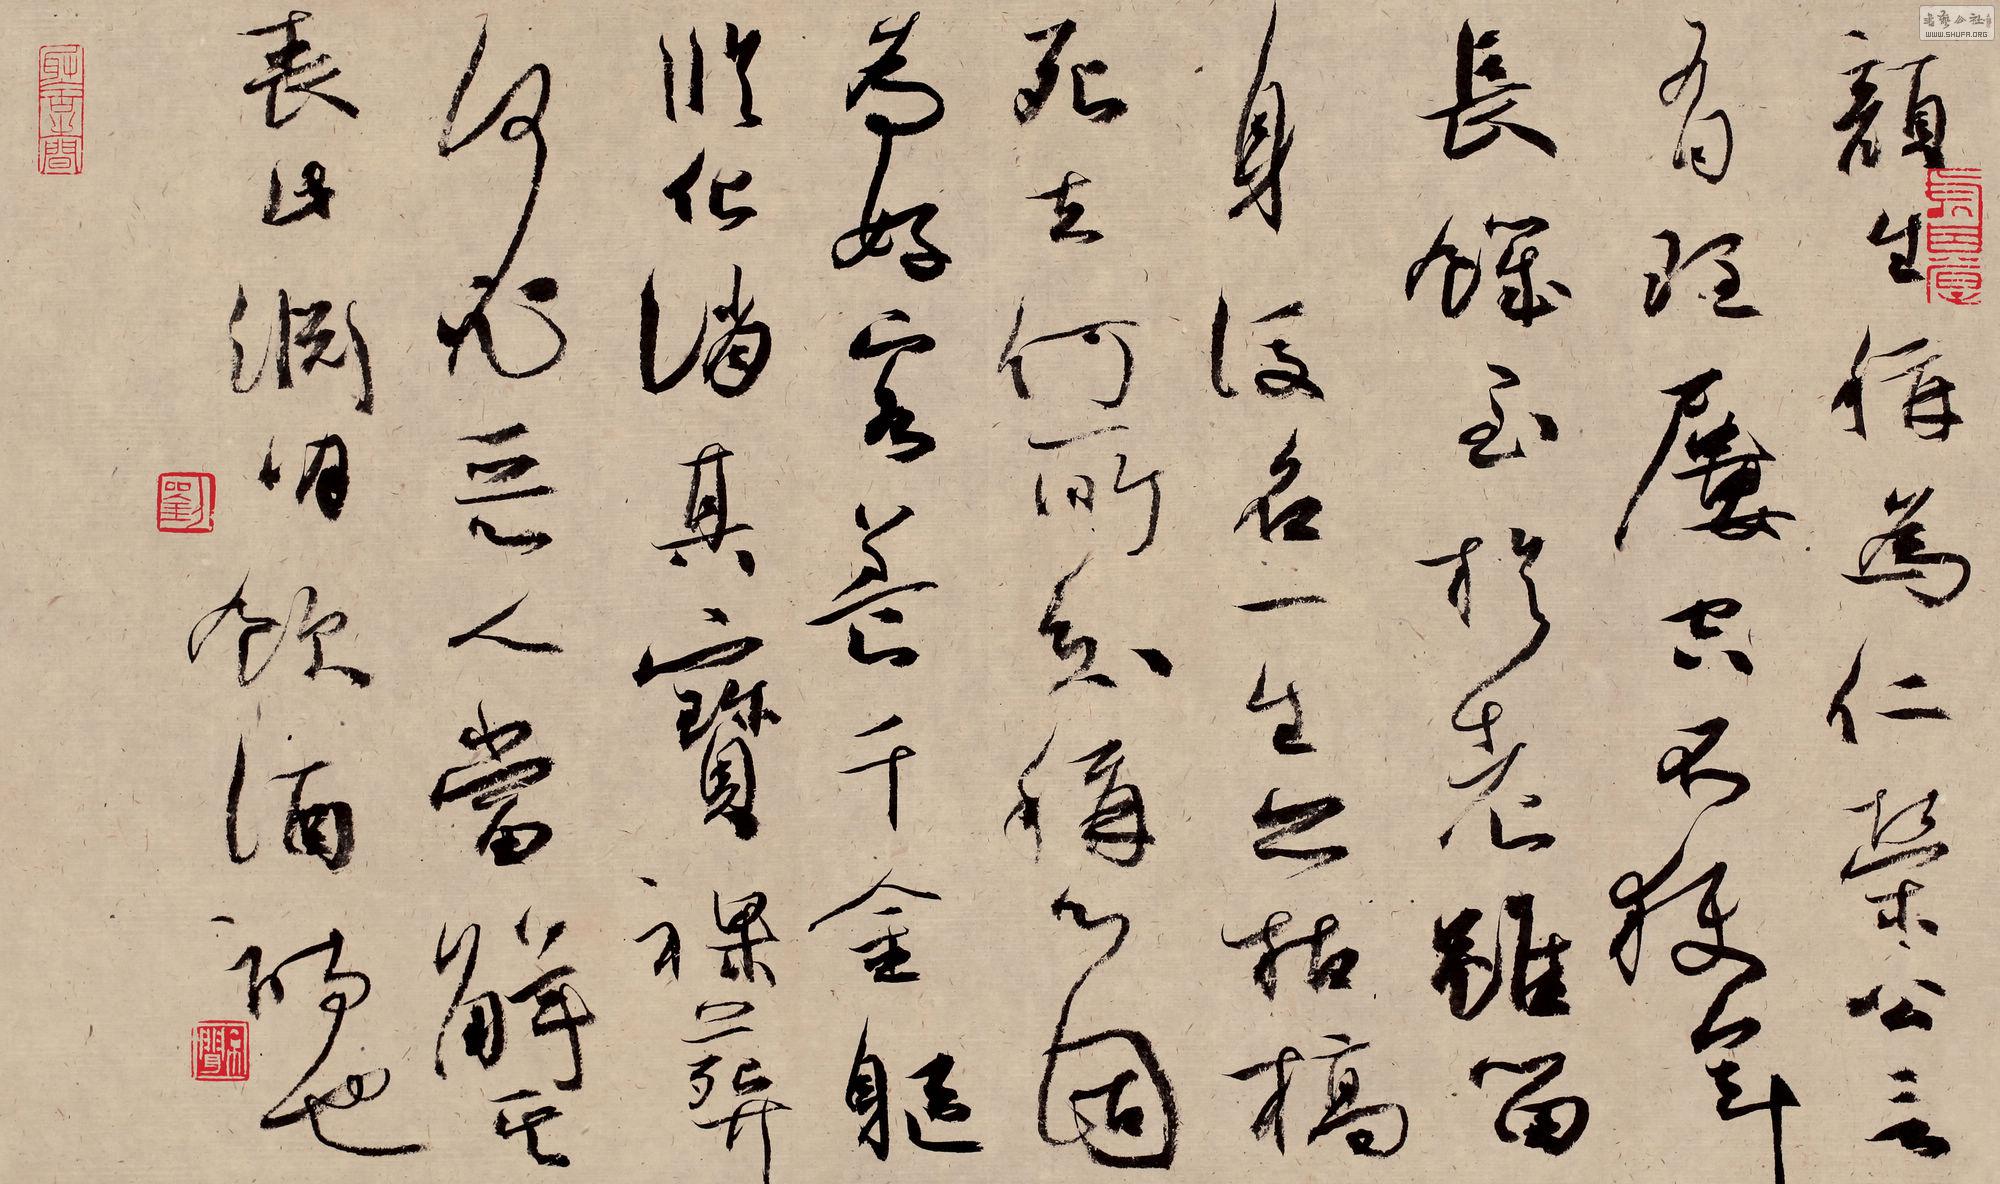 顏生稱為仁榮公言
有道屢空不獲年
長饑至於老雖留
身後名一生亦枯槁
死去何所知稱心固
為好客養千金軀
臨化消其寶裸葬
何必惡人當解其
表此淵明飲酒詩也
劉
書藝公社
WWW.SHUFA.ORG